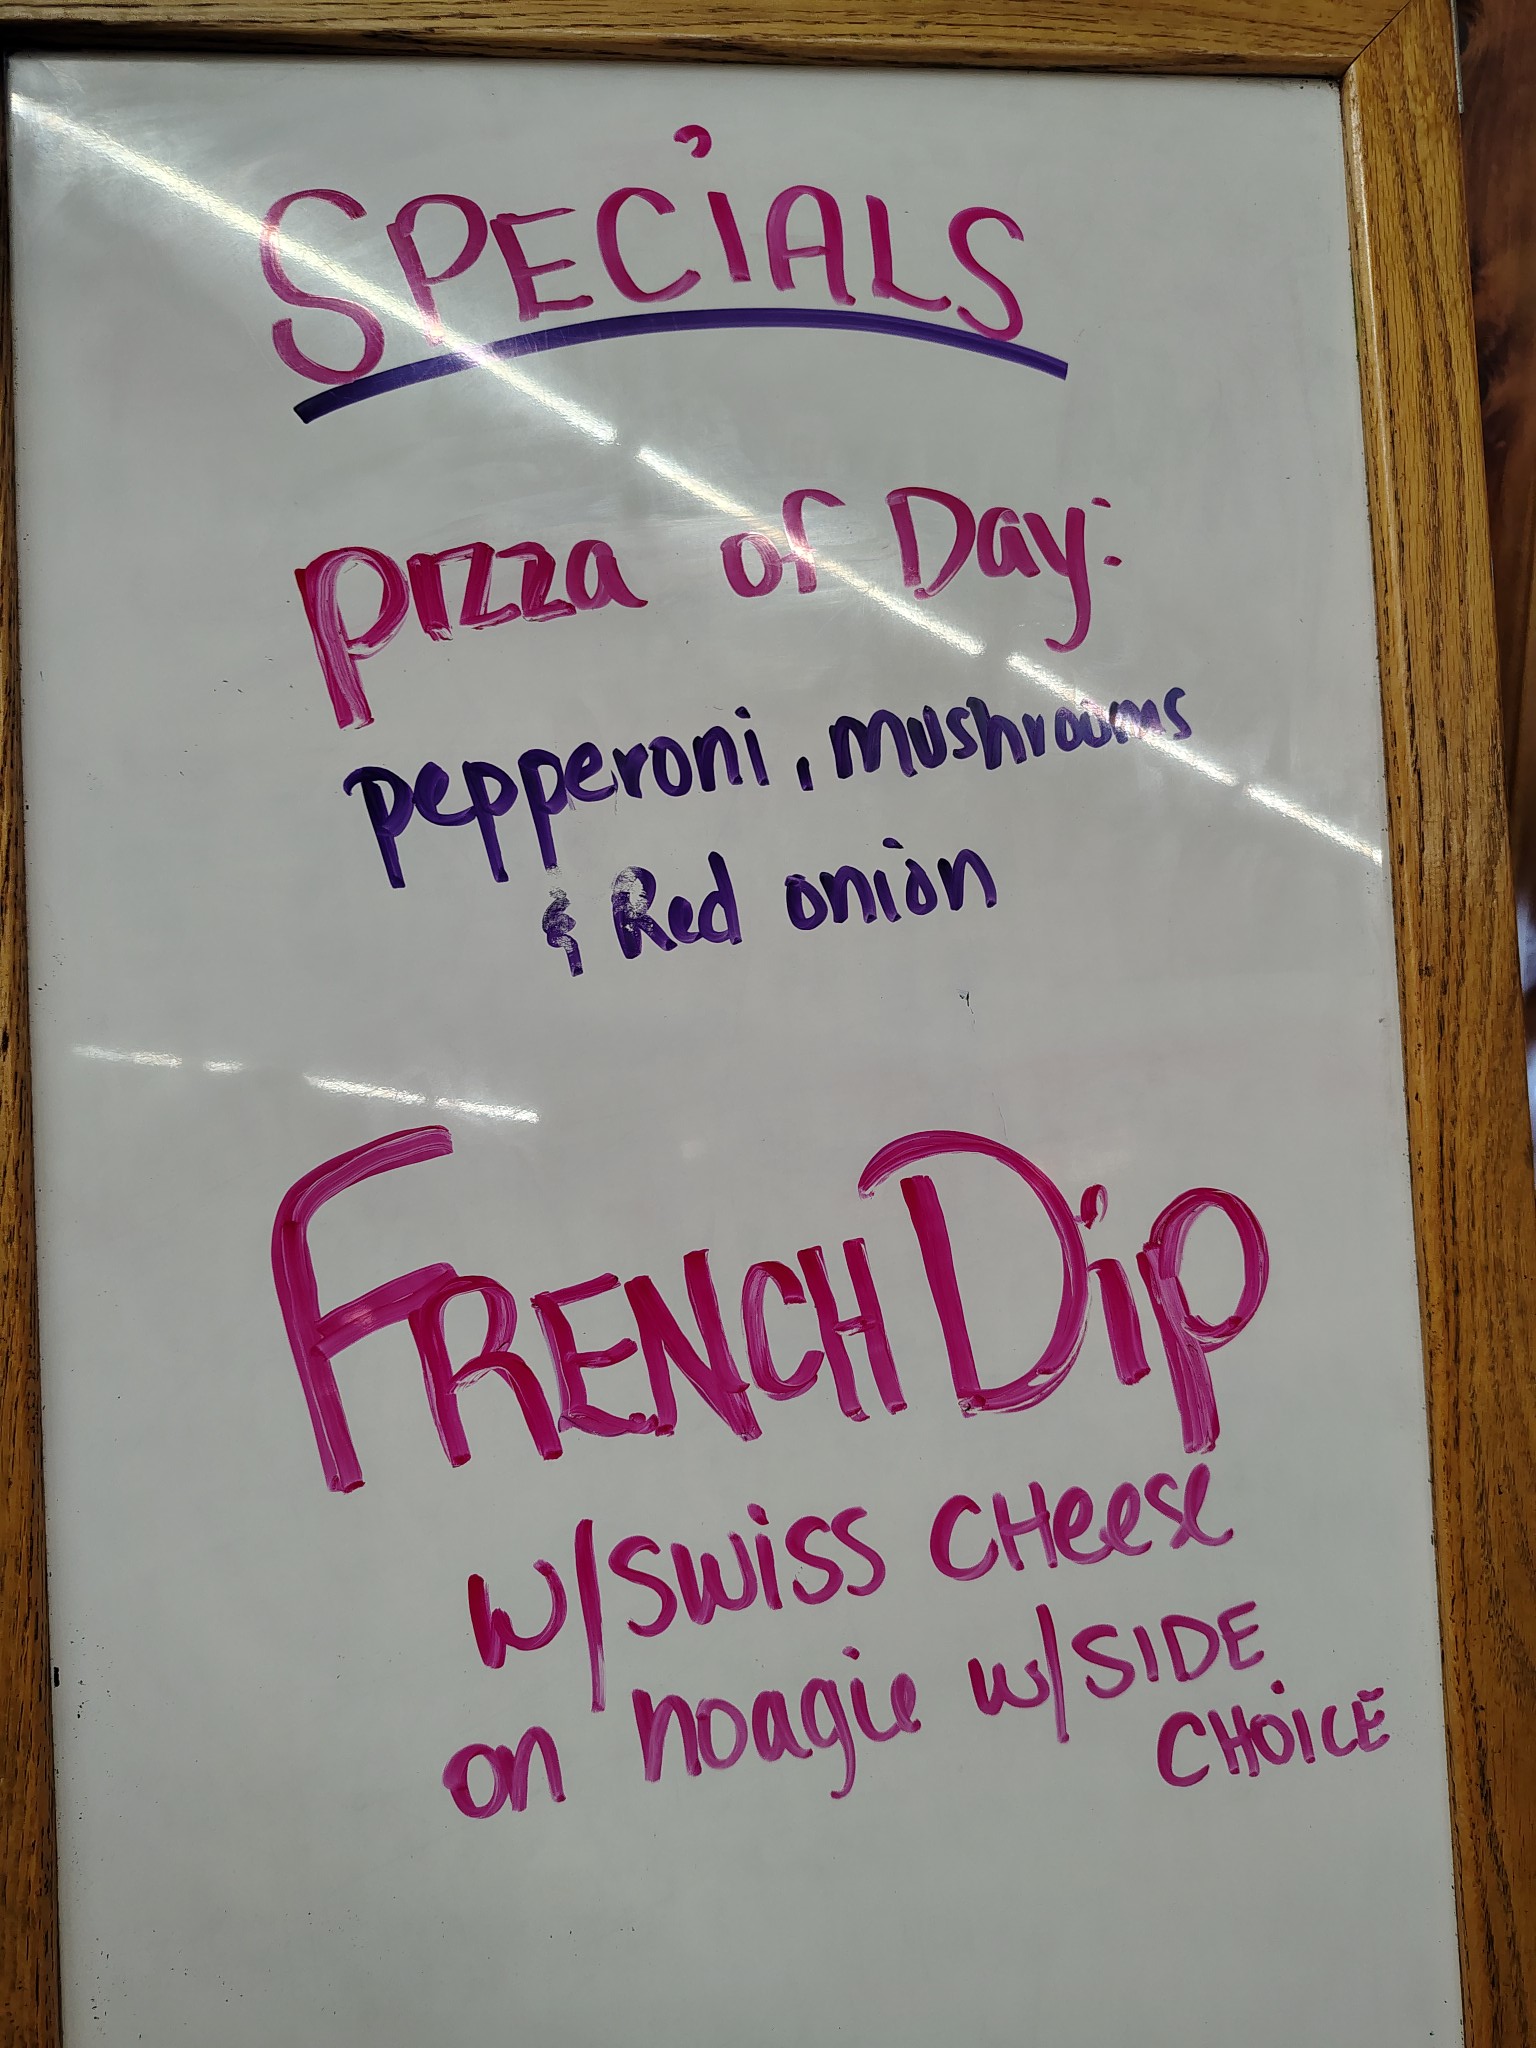 SPECiALS
Pizza of Day:
pepperoni, mushrooms
& Red onion
FRENCH Dip
w/Swiss CHeese
on hoagie w/SIDE
CHOICE